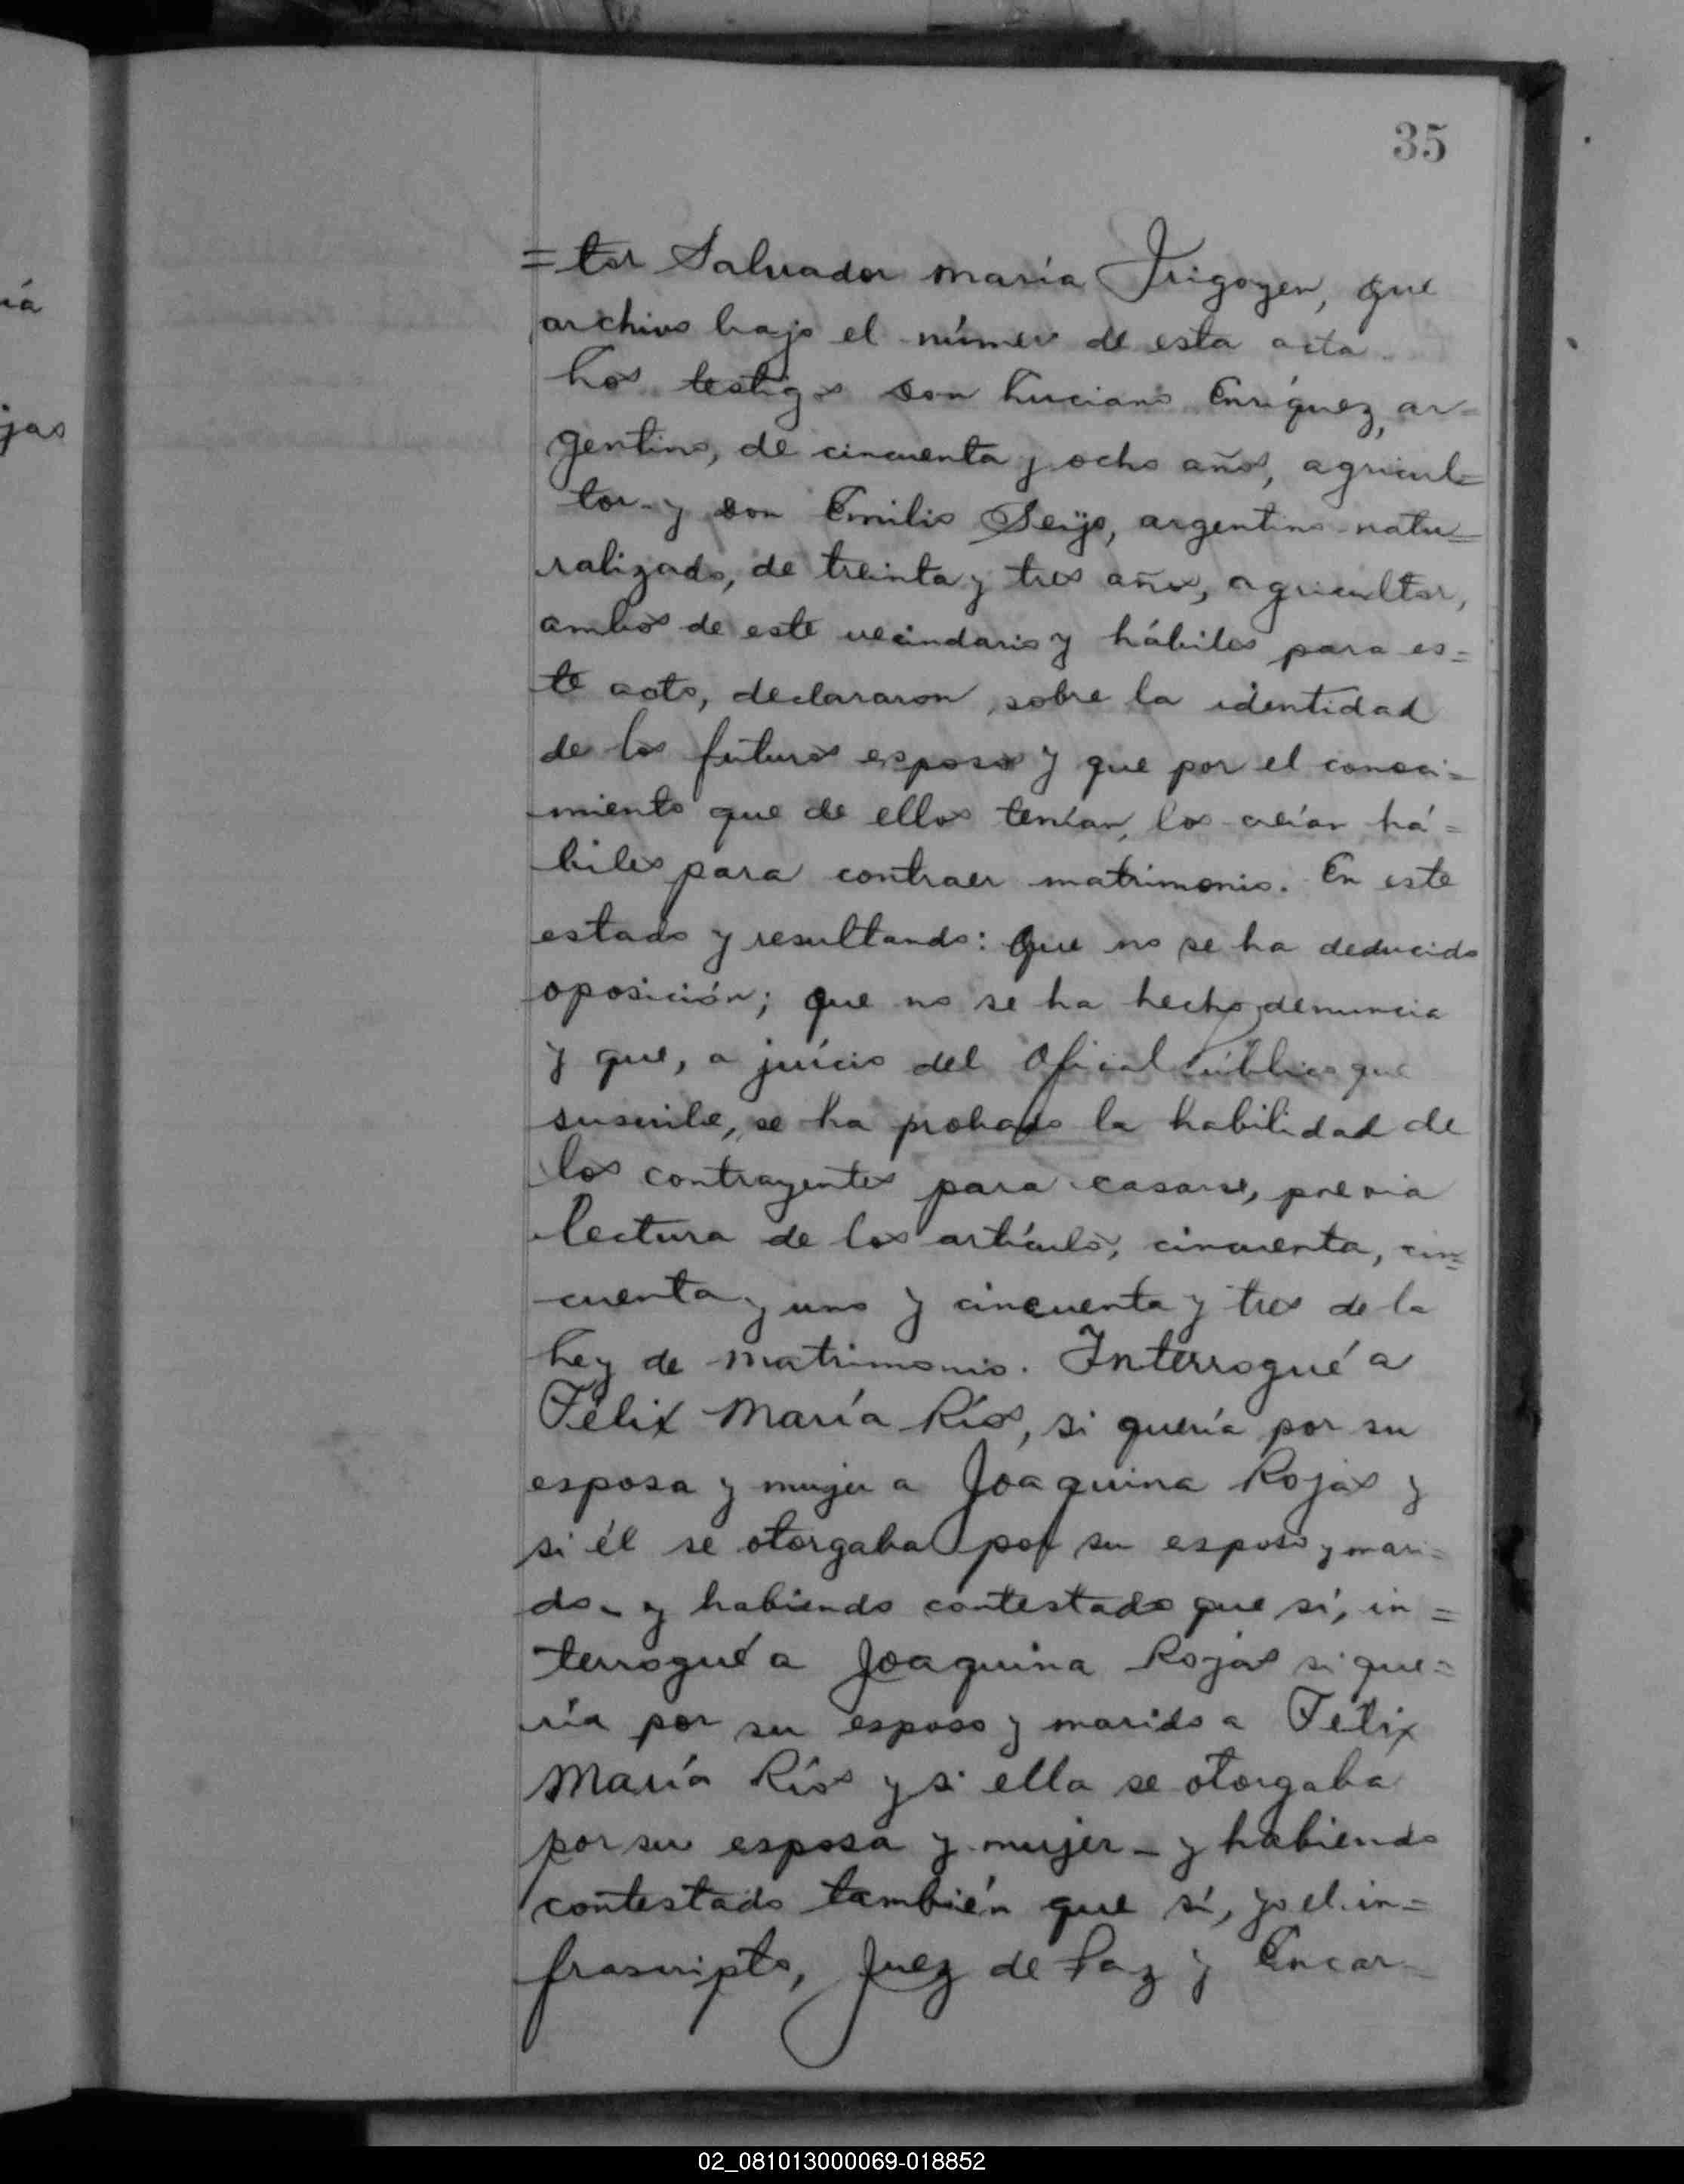 35
=tor Salvador María Irigoyen, que
archivo bajo el número de esta acta.
Los testigos don Luciano Enríquez, ar-
gentino, de cincuenta y ocho años, agricul=
tor- y don Emilio Seijo, argentino natu=
ralizado, de treinta y tres años, agricultor,
ambos de este vecindario y hábiles para es=
te acto, declararon sobre la identidad
de los futuros esposos y que por el conoci=
miento que de ellos tenían, los creían há=
biles para contraer matrimonio. En este
estado y resultando: Que no se ha deducido
oposición; que no se ha hecho denuncia
y que, a juício del Oficial Público que
suscribe, se ha probado la habilidad de
los contrayentes para casarse, previa
lectura de los artículos, cincuenta, cin=
cuenta y uno y cincuenta y tres de la
Ley de Matrimonio. Interrogué a
Félix María Ríos, si quería por su
esposa y mujer a Joaquina Rojas y
si él se otorgaba por su esposo y mari=
do- y habiendo contestado que sí, in=
terrogué a Joaquina Rojas si que=
ría por su esposo y marido a Félix
María Ríos y si ella se otorgaba
por su esposa y mujer- y habiendo
contestado también que sí, yo el in=
frascripto, Juez de Paz y Encar-
ía
jas
02_081013000069-018852